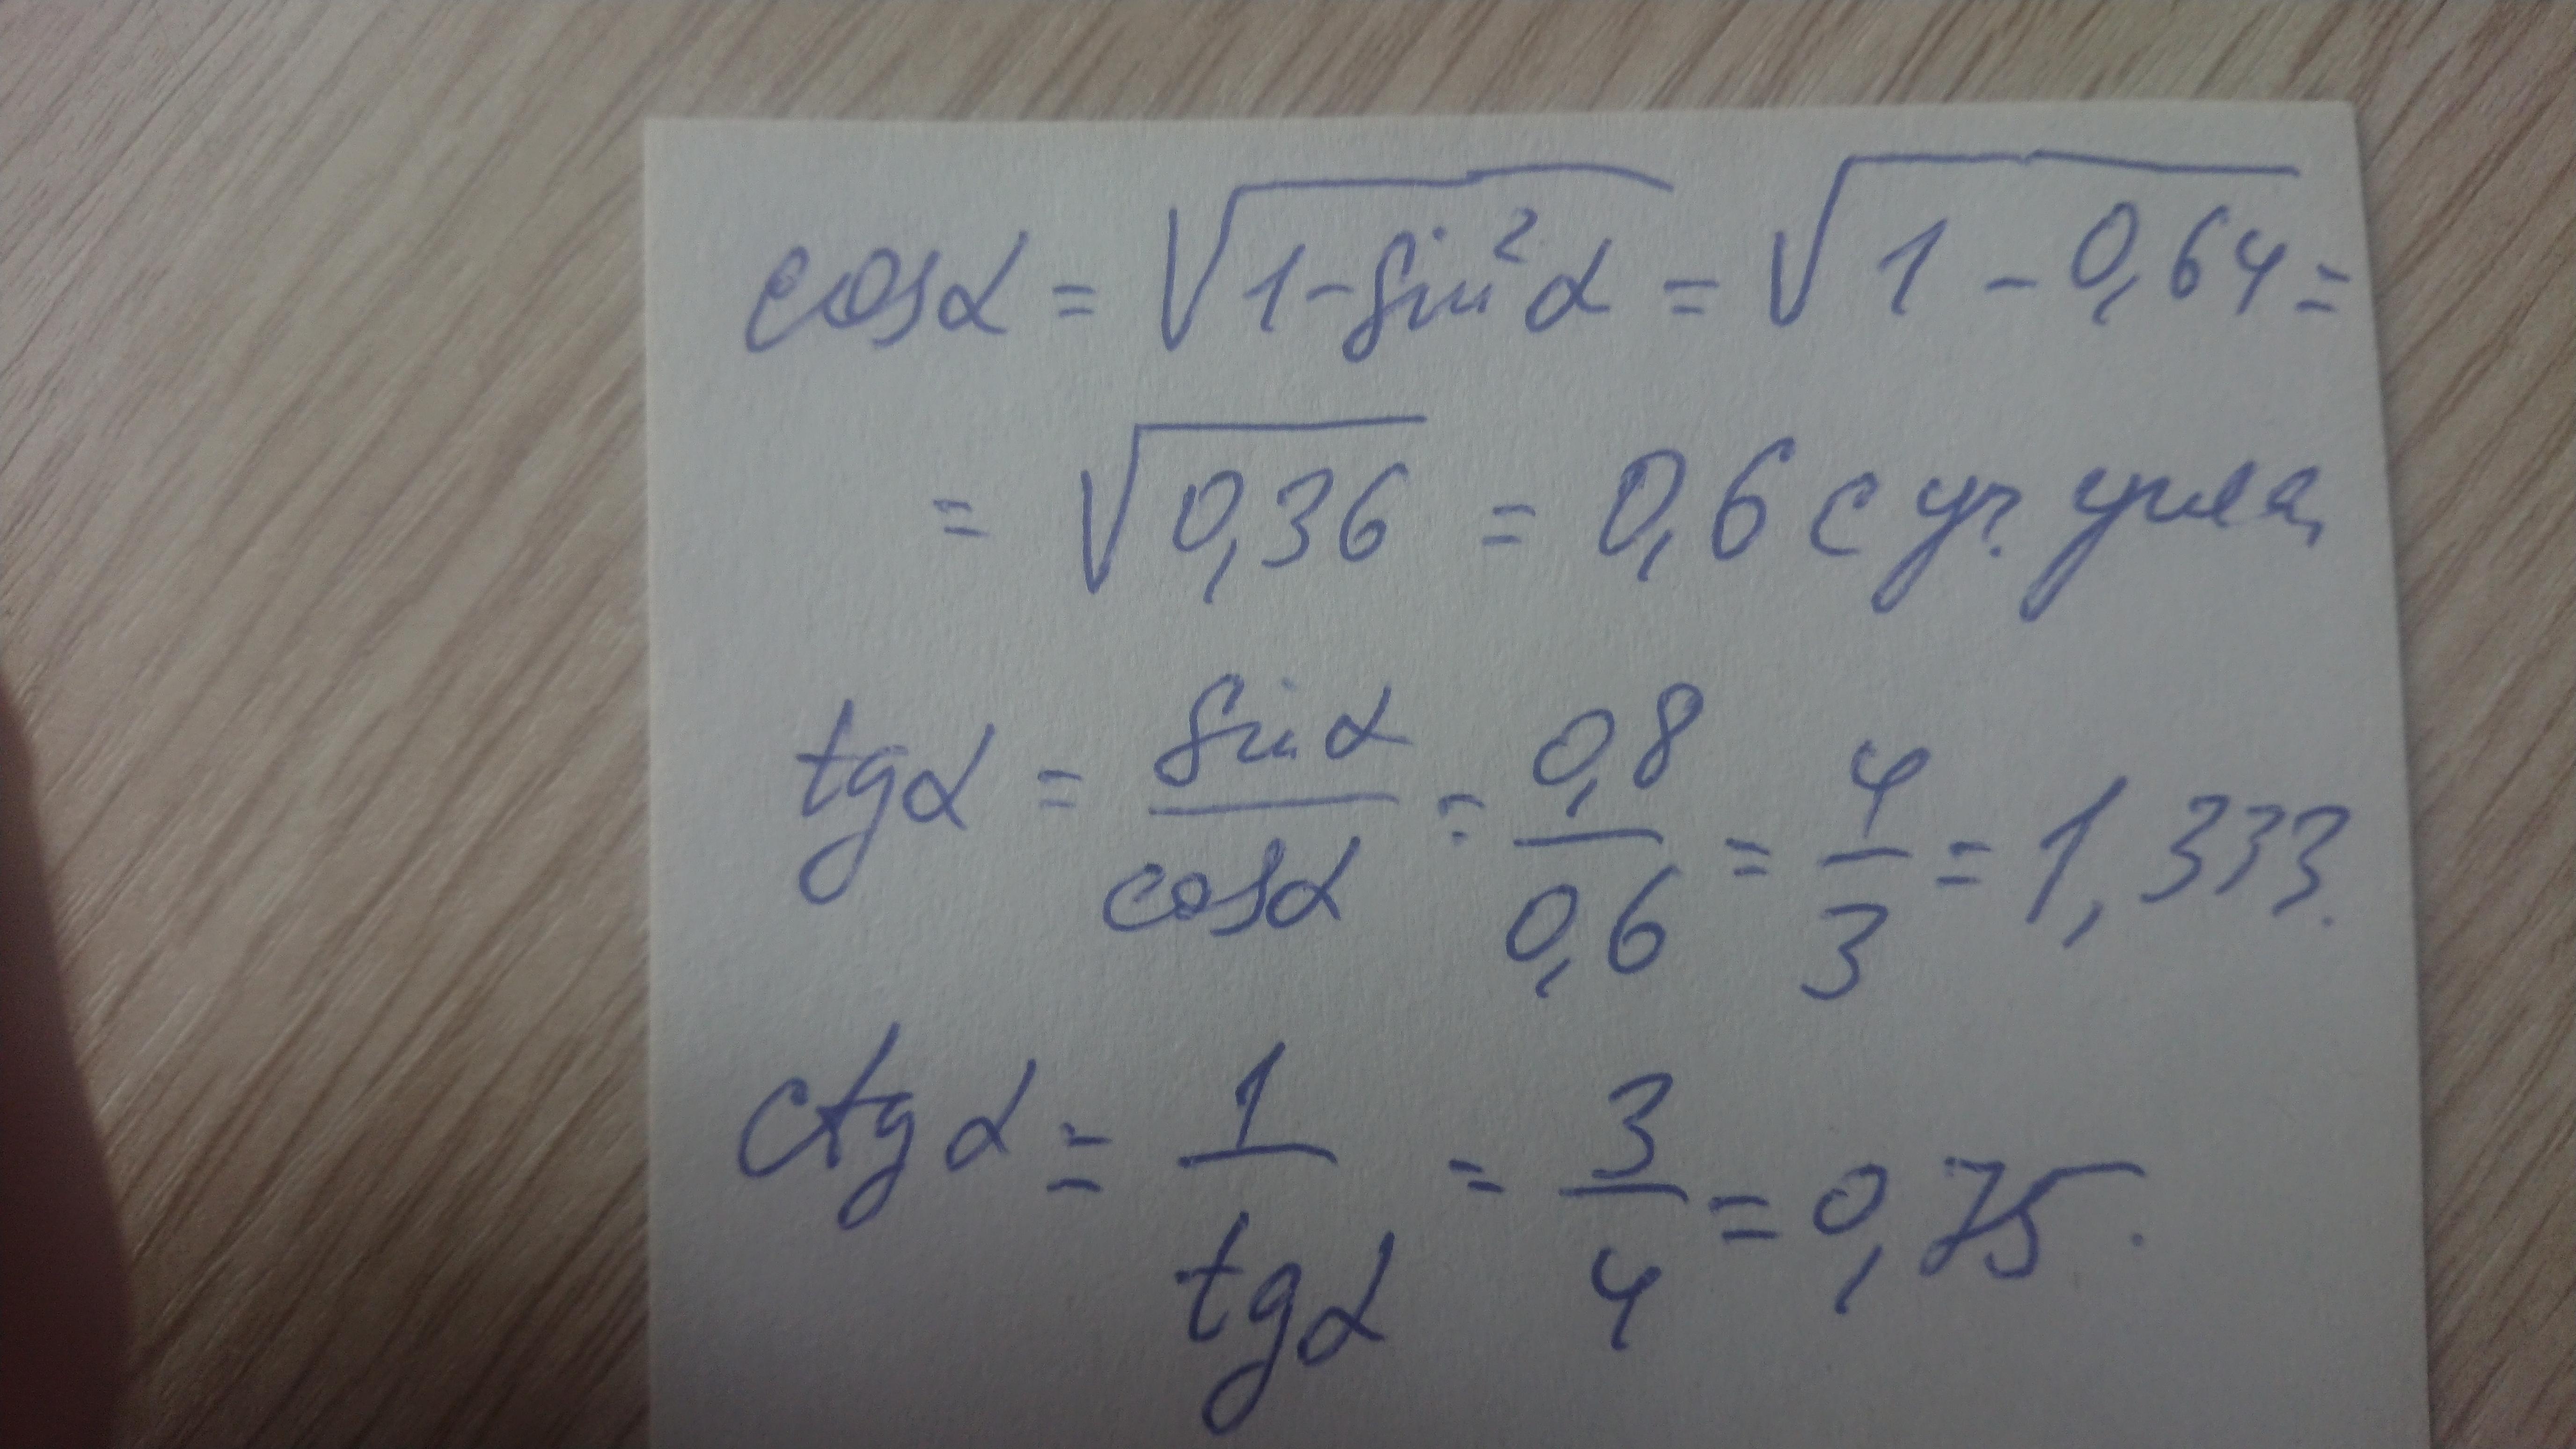 cosα = √1-sin²α = √1 - 0,64 =
= √0,36 = 0,6 с уч. угла,
tgα = sinα/cosα = 0,8/0,6 = 4/3 = 1,333.
ctgα = 1/tgα = 3/4 = 0,75.